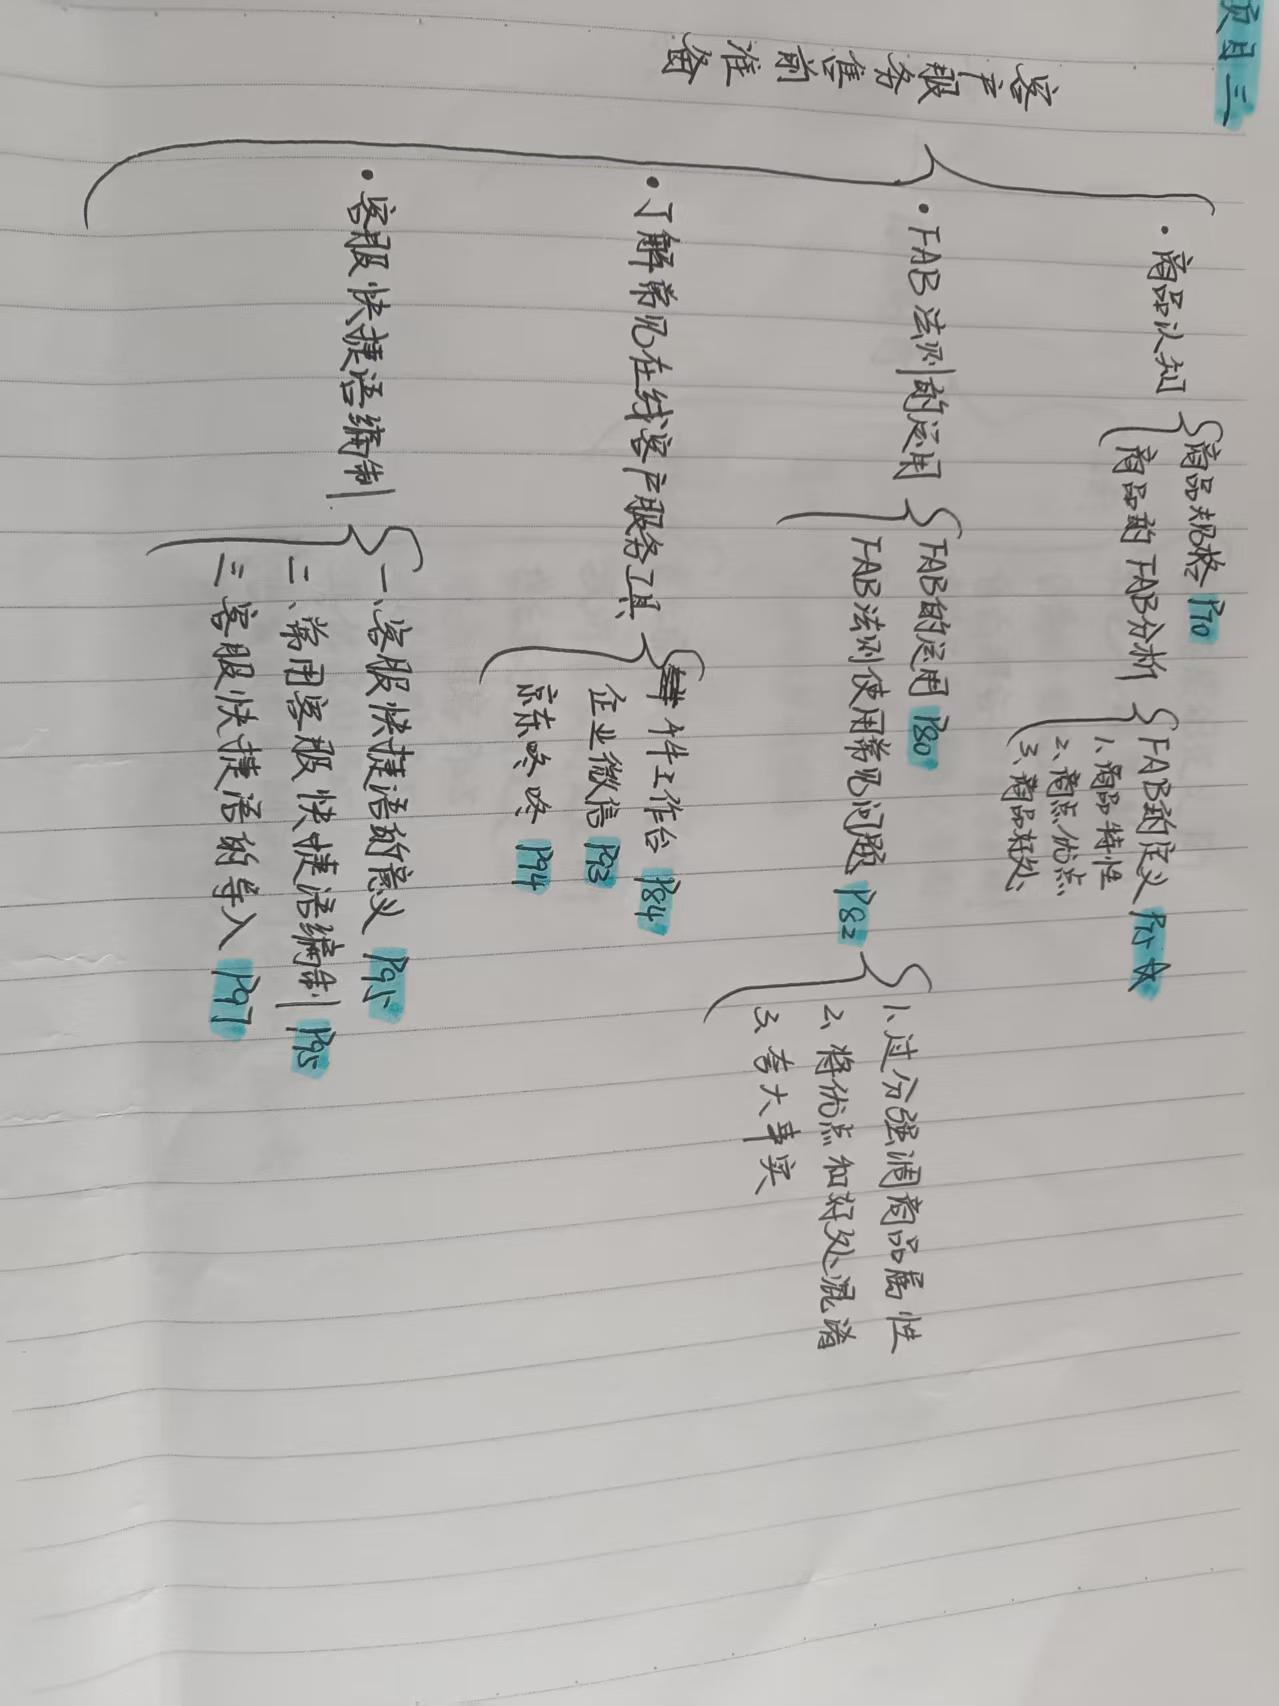 项目三
客户服务售前准备
·商品认知
商品规格 P70
商品的FAB分析
FAB的定义 P75 ☆
1、商品特性
2、商点优点
3、商品好处
·FAB法则的运用
FAB的运用 P80
FAB法则使用常见问题 P82
1、过分强调商品属性
2、将优点和好处混淆
3、夸大事实
·了解常见在线客户服务工具
牛工作台 P84
企业微信 P93
京东咚咚 P94
·客服快捷语编制
一、客服快捷语的意义 P95
二、常用客服快捷语编制 P95
三 客服快捷语的导入 P97